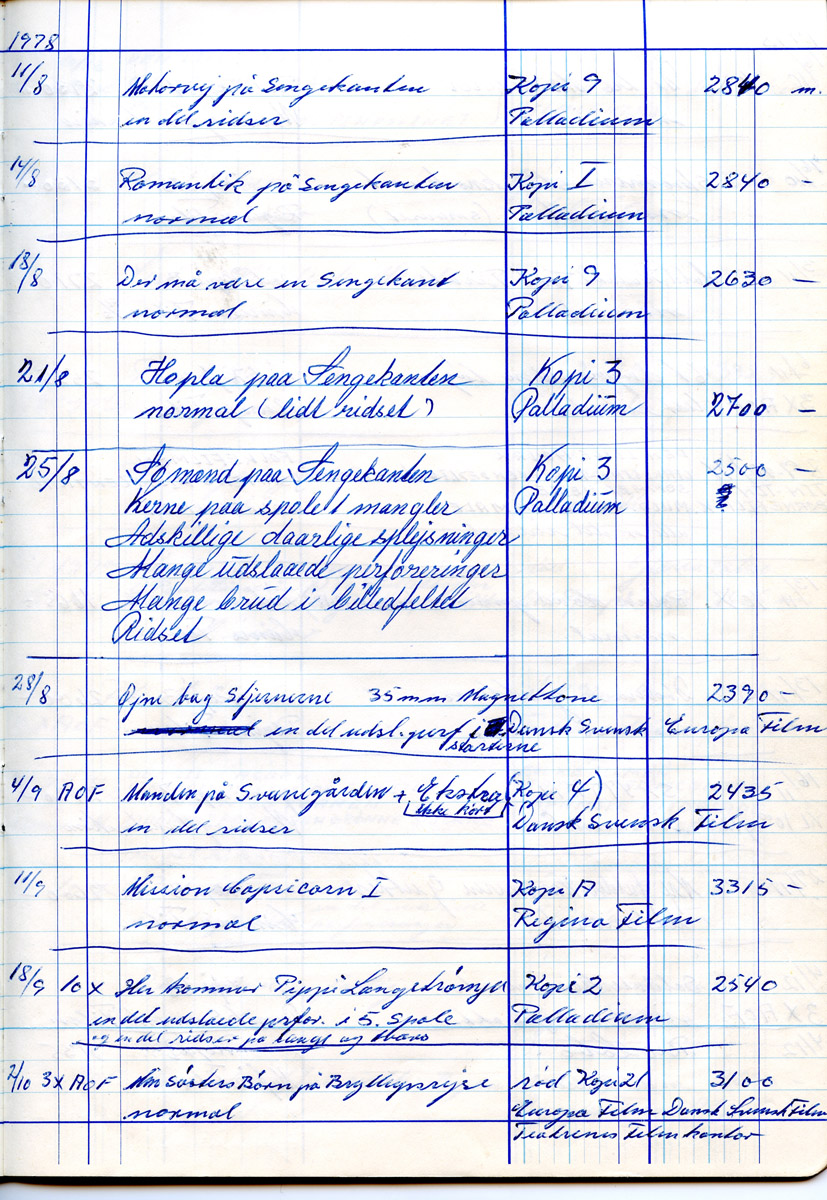 1978
11/8 Motorvej på Sengekanten Kopi 9 2840 m.
en del ridser Palladium
14/8 Romantik på Sengekanten Kopi I 2840 —
normal Palladium
18/8 Der må være en Sengekant Kopi 9 2630 —
normal Palladium
21/8 Hopla paa Sengekanten Kopi 3
normal (lidt ridset) Palladium 2700 —
25/8 Sømænd paa Sengekanten Kopi 3 2500 —
Kerne paa spole 1 mangler Palladium
Adskillige daarlige splejsninger
Mange udslaaede perforeringer
Mange brud i billedfeltet
Ridset
28/8 Øjne bag Stjernerne 35mm Magnettone 2390 —
en del udsl. perf i Dansk Svensk Europa Film
starterne
4/9 AOF Manden på Svanegården + Ekstra (Kopi 4) 2435
ikke kørt
en del ridser Dansk Svensk Film
11/9 Mission Capsicorn I Kopi A 3315 —
normal Regina Film
18/9 10 x Her kommer Pippi Langstrømpe Kopi 2 2540
en del udslaede perfor. i 5. Spole Palladium
og en del ridser på langs og tværs
2/10 3x AOF Min Søsters Børn på Bryllupsrejse rød Kopi 21 3100
normal Europa Film Dansk Svensk Film
Teatrenes Filmkontor